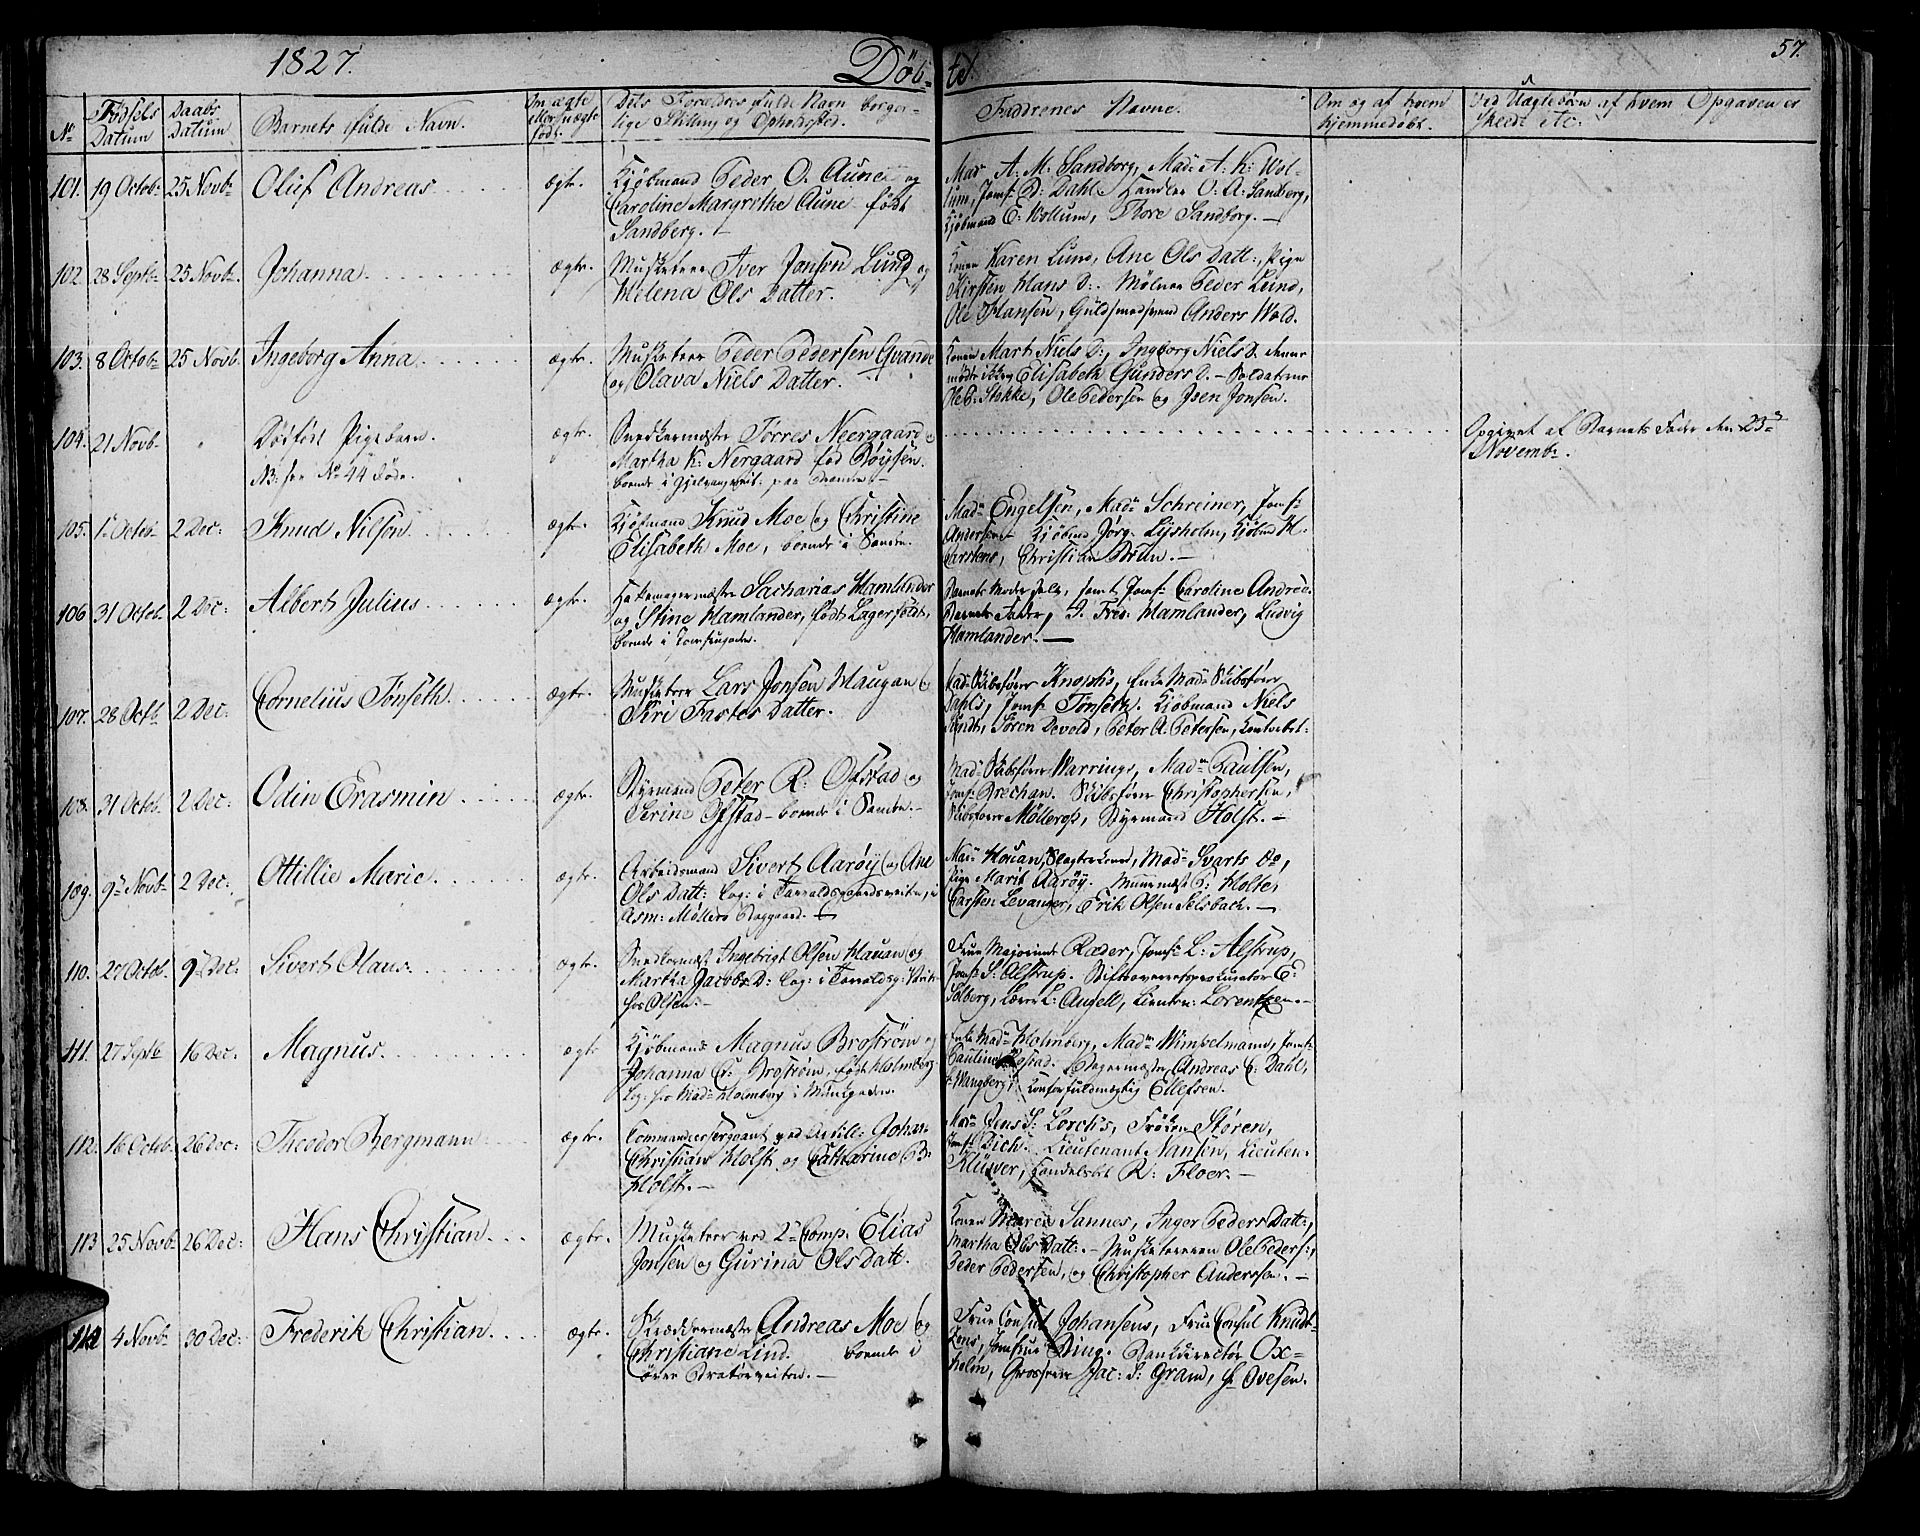 1827.
Döb-
te.
57.
No
Födsels Datum
Daabs Datum
Barnets fulde Navn.
Om ægte eller uægte født.
Dets Forældres fulde Navn borgerlige Stilling og Opholdsted.
Faddrenes Navne.
Om og af hvem hjemmedöbt.
Ved Uægtebörn af hvem Opgaven er skeed etc:
101. 19 Octob: 25 Novb: Oluf Andreas ægte.
Kjöbmand Peder O. Aune og
Caroline Margrethe Aune født
Sandberg. -
Mad A. M: Sandborg, Mad: A. K: Wol-
lum, Jomf: D: Dahl. Handler O. A: Sandberg,
Kjöbmand E: Wollum, Thore Sandborg. -
102. 28 Septb: 25 Novb. Johanna ægte.
Musketeer Iver Jonsen Lund og
Helena Ols Datter.
Konen Karen Lund, Ane Ols Datt:, Pige
Kirsten Hans D:. Mölner Peder Lund,
Ole Hansen, Guldsmedsvend Anders Wold.
103. 8 Octob: 25 Novb. Ingeborg Anna ægte.
Musketeer Peder Pedersen Gvande
og Olava Niels Datter.
Konen Mart Niels D:, Ingborg Niels D. denne
mödte ikke Elisabeth Gunders D. - Soldaterne
Ole P. Stokke, Ole Pedersen og Joen Jonsen.
104. 21 Novb. Dödfödt Pigebarn.
NB: see No 44 Döde. ægte.
Snedkermester Törres Neergaard &
Martha K: Nergaard fød Böysen.
boende i
Opgivet af Barnets Fader den 23de
Novemb:.
105. 1 Octob: 2 Dec: Knud Nilson ægte.
Kjöbmand Knud Moe og Christine
Elisabeth Moe, boende i Sanden.
Mad: Engelsen, Mad: Schreiner, Jomf:
Andersen. Kjöbmd Jörg. Lysholm, Kjöbmd H.
Carstens, Christian Brun. -
106 31 Octob. 2 Dec: Albert Julius ægte.
Hattemagermester Sacharias Hamlander
og Stine Hamlander, født Lagerfoldt,
boende i
Barnets Moder selv, samt Jomf: Caroline André.
Barnets Fader, J. Fred. Hamlander, Ludvig
Hamlander. -
107. 28 Octb 2 Dec: Cornelius Tönseth ægte.
Musketeer Lars Jonsen Haugan &
Siri Fastes Datter.
Mad: Skibsförer Knoph's, Enke Mad: Skibsförer
Jomf: Tönseth. Kjöbmand Niels
Lundt, Sören Devold, Peter A. Petersen, Contorbet:
108. 31 Octob. 2 Dec: Odin Erasmin ægte.
Styrmand Peter R: Ofstad og
Serine Ofstad - boende i Sanden. -
Mad: Skibsförer Warrings, Mad: Paulsen,
Jomf: Grechan. Skibsförer Christophersen,
Skibsförer Möllerop, Styrmand Holst. -
109. 9 Novb: 2 Dec: Ottillie Marie ægte.
Arbeidsmand Sivert Aaröy og Ane
Ols Datt: log: i Taraldsgaardsveiten, i
Asm: Möllers Baggaard. -
Mad: Houan, Slagterkone, Mad: Svarts do,
Pige Marit Aaröy. Muurmest. P: Holte,
Carsten Levanger, Erik Olsen Selsbach. -
110. 27 Octob. 9 Dec: Sivert Olaus ægte.
Snedkermest. Ingebrigt Olsen Hauan og
Martha Jacobs D: log: i Taraldsg: Veit:
hos Olsen: -
Frue Majorinde Ræder, Jomf: L: Alstrup,
Jomf: S: Alstrup. Stiftsoverretsprocurator E:
Solberg, Lærer L: Angell, Lieuten: Lorentzen. -
111. 27 Septb 16 Dec. Magnus ægte
Kjöbmand Magnus Broström og
Johanna C: Broström, født Holmberg
log: hos Mad: Holmberg i Munkgaden.
Enke Mad: Holmberg, Mad: Wimpelmann, Jomf:
Pauline Andreas C: Dahl,
Wangberg, Contorfuldmægtig Ellefsen.
112. 16 Octob: 26 Dec: Theodor Bergmann ægte.
Commandeersergeant ved Artill: Johan
Christian Holst og Catharine B:
Holst. -
Mad: Jens S: Lorch's, Fröken Stören,
Jomf: Dich. Lieutenant Nansen, Lieuten:
Klüwer, Handelsbet R: Floer. -
113 25 Novb: 26 Dec: Hans Christian ægte.
Musketeer ved 2: Comp. Elias
Jonsen og Gurina Ols Datt.
Konen Maren Sannes, Inger Peders Datt:,
Martha Ols Datt:. - Musketererne Ole Peders:,
Peder Pedersen, og Christopher Andersen. -
114 4 Novb: 30 Dec: Frederik Christian ægte.
Skræddermester Andreas Moe og
Christiane Lind. boende i
övre Bratörveiten. -
Frue Consul Johansens, Frue Consul Knudt-
zens, Jomfrue Bing. Bankdirectör Ox-
holm, Grosserer Jac: S: Gram, Hr Ovesen.